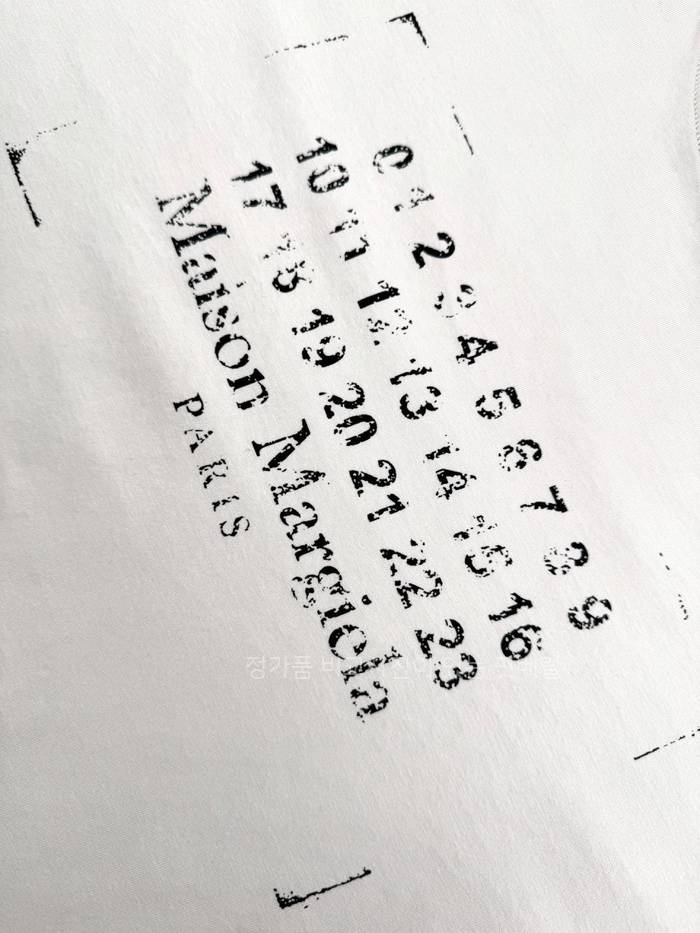 0 1 2 3 4 5 6 7 8 9
10 11 12 13 14 15 16
17 18 19 20 21 22 23
Maison Margiela
PARIS
정가품